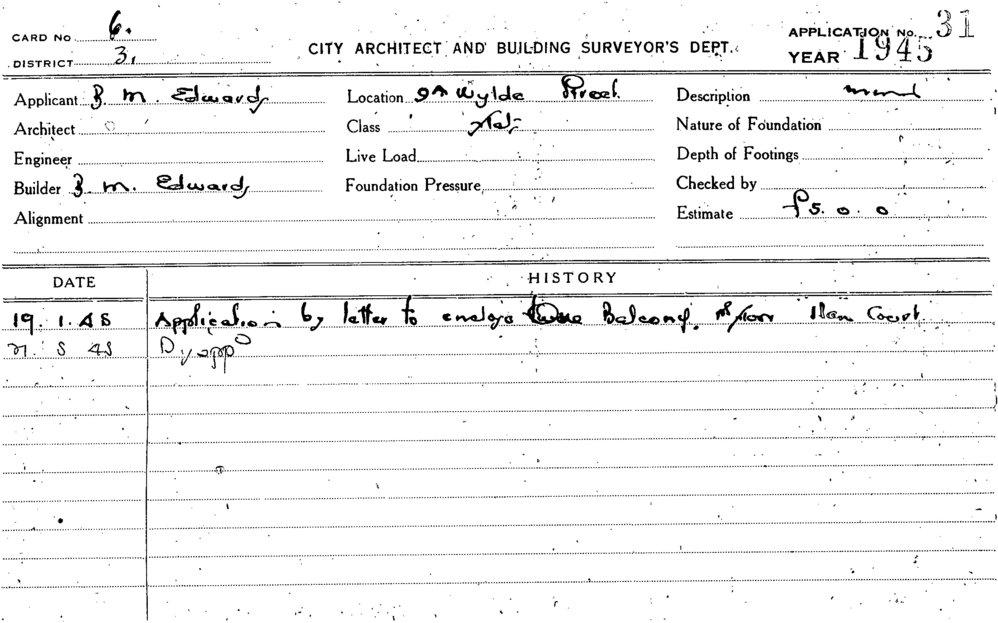 CARD No 6.
DISTRICT 3.
CITY ARCHITECT AND BUILDING SURVEYOR'S DEPT.
APPLICATION No. 31
YEAR 1945
Applicant B. M. Edwards
Location 9A Wylde Street.
Description
Architect
Class
Nature of Foundation
Engineer
Live Load
Depth of Footings
Builder B. M. Edwards
Foundation Pressure
Checked by
Alignment
Estimate £5. 0. 0
DATE
HISTORY
19. 1. 45 Application by letter to enclose Balcony, Court.
5 45